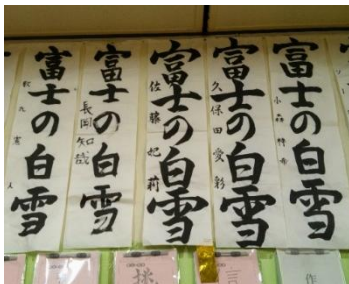 富士の白雪
富士の白雪
長岡知哉
富士の白雪
佐藤妃莉
富士の白雪
久保田愛彩
富士の白雪
小森